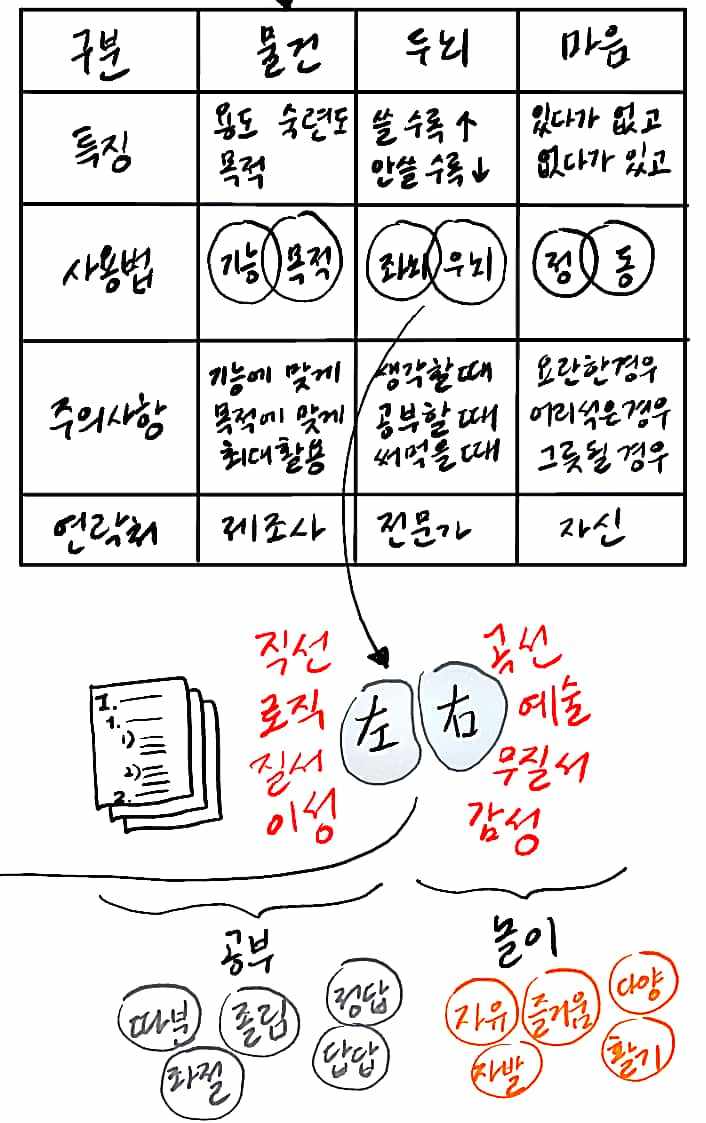 구분 물건 두뇌 마음
특징
용도 숙련도
목적
쓸수록↑
안쓸수록↓
있다가 없고
없다가 있고
사용법
기능 목적
좌뇌 우뇌
정 동
주의사항
기능에 맞게
목적에 맞게
최대활용
생각할때
공부할때
써먹을때
요란한경우
어리석은경우
그릇될경우
연락처 제조사 전문가 자신
I.
1.
1)
2)
2.
직선
로직
질서
이성
左 右
곡선
예술
무질서
감성
공부
따분 졸림 정답
좌절 답답
놀이
자유 즐거움 다양
자발 활기